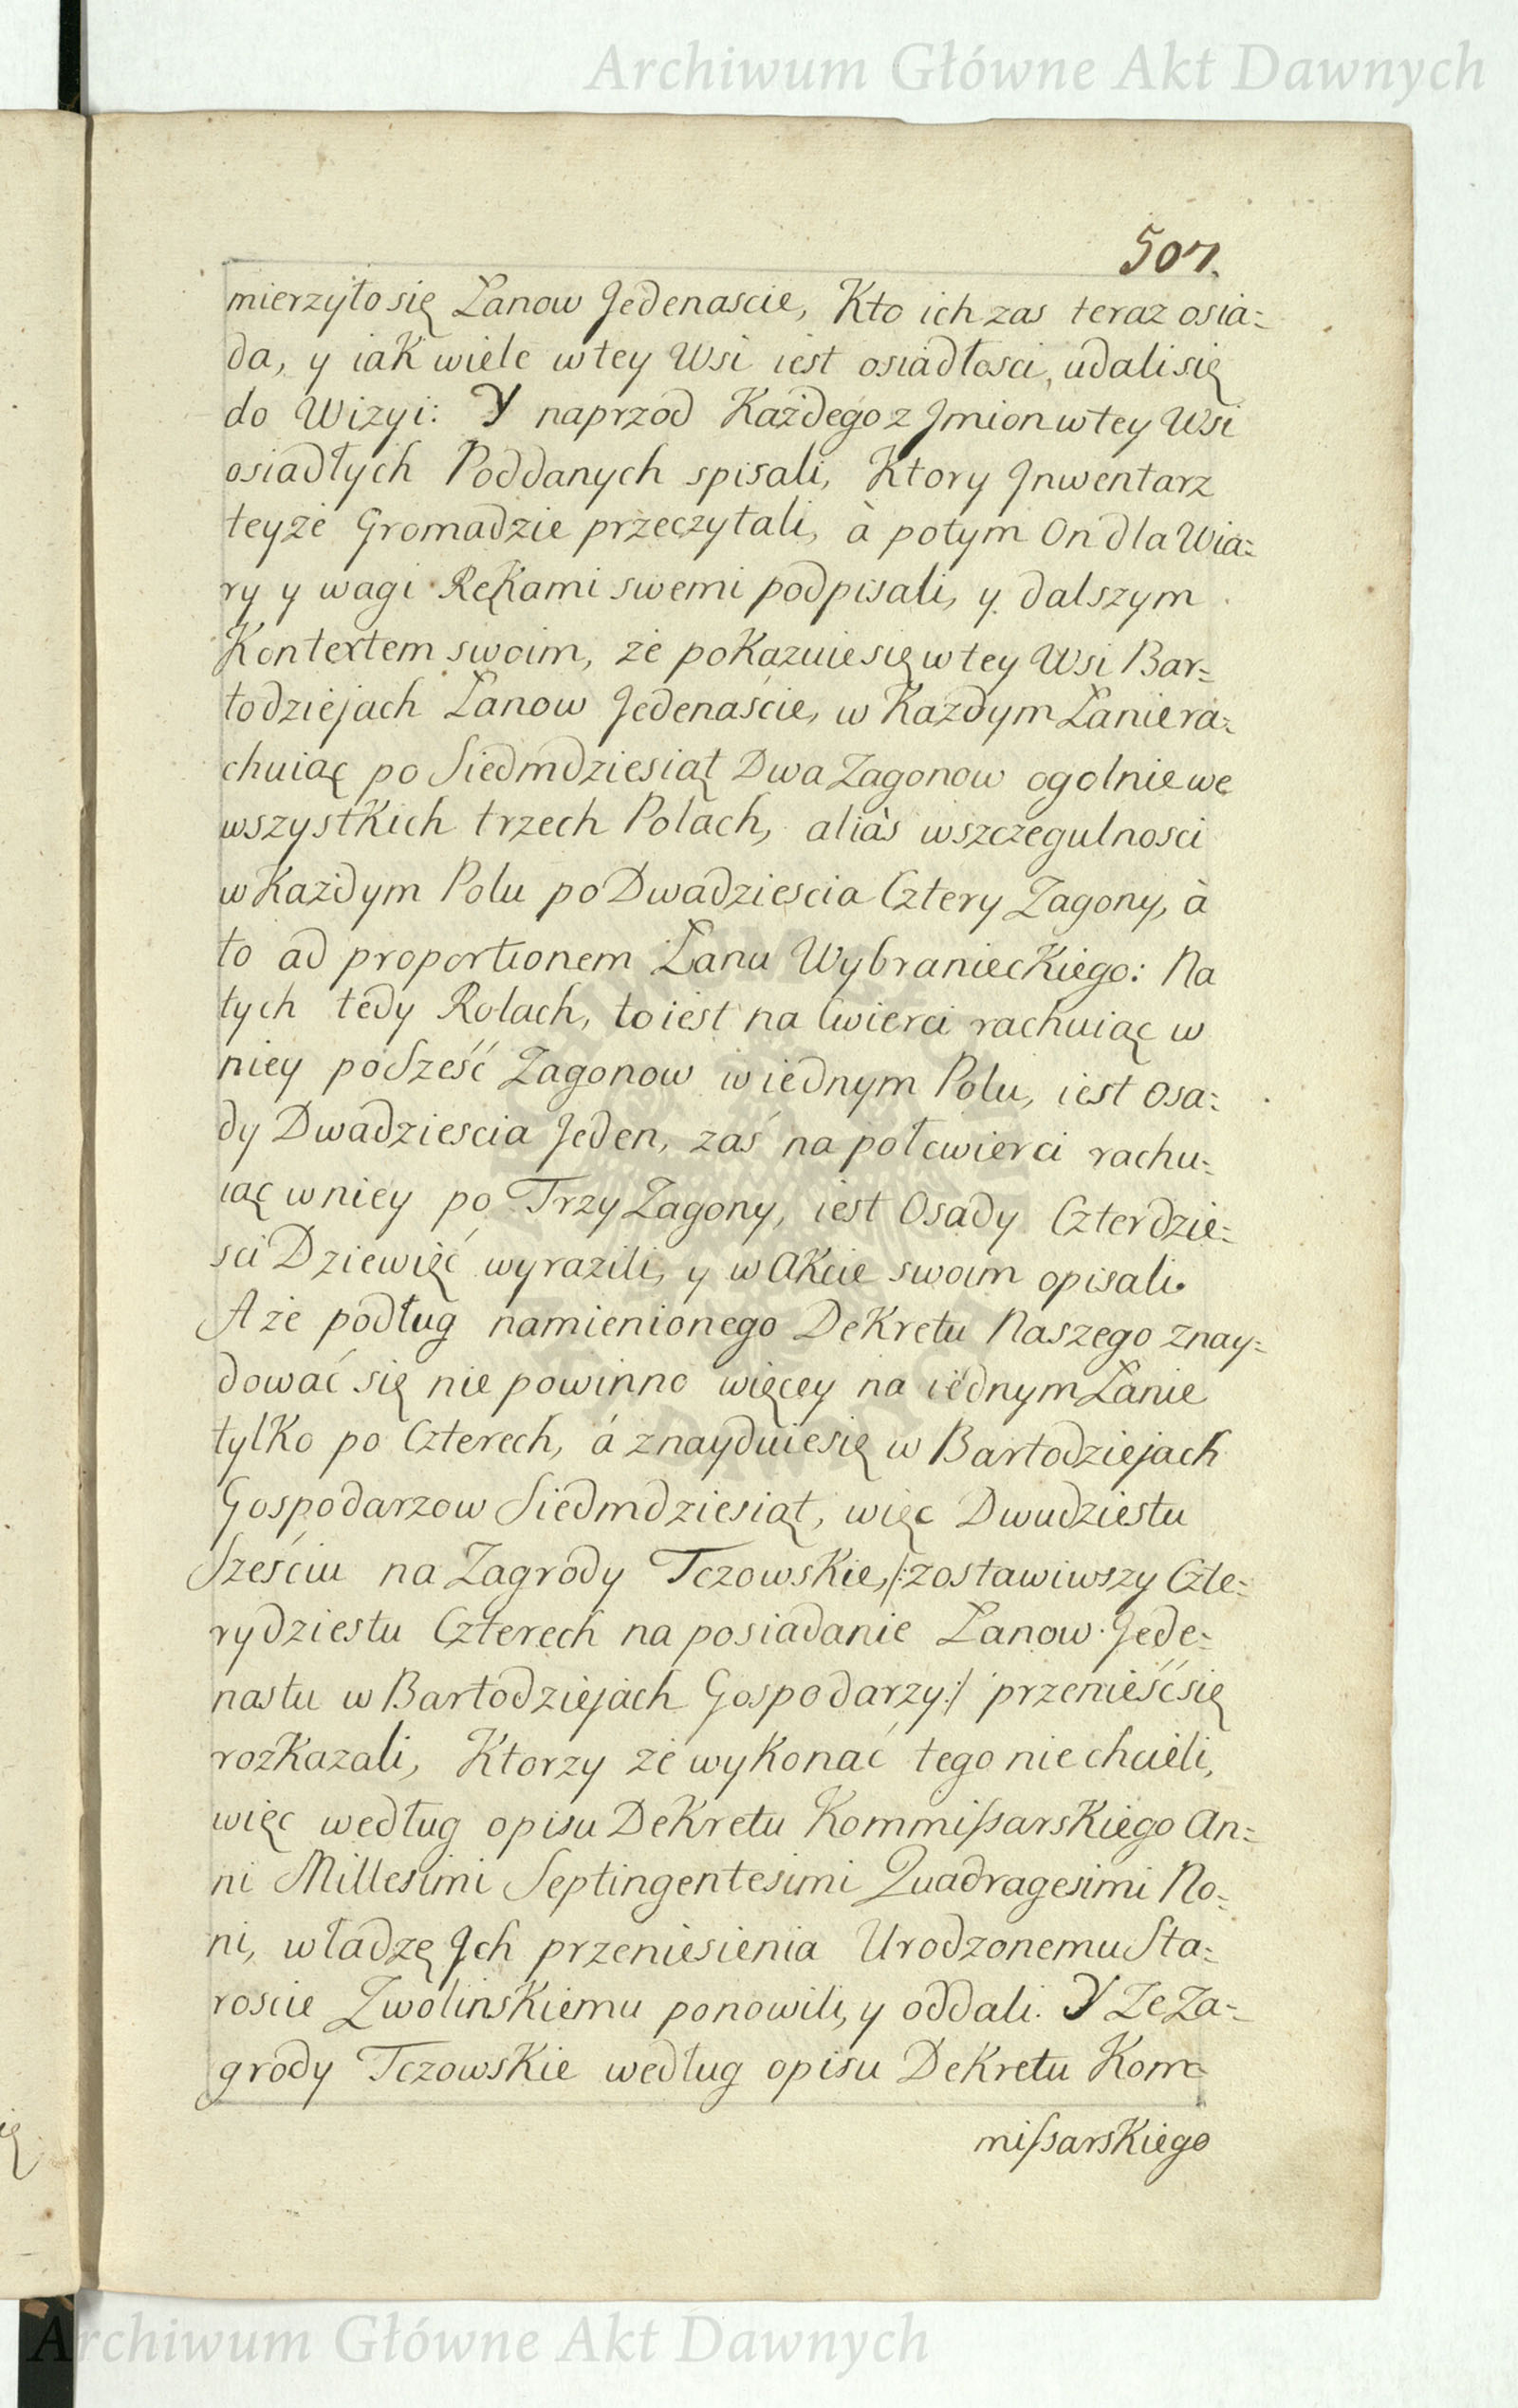 Archiwum Główne Akt Dawnych
507.
mierzyło się Łanow Jedenascie, Kto ich zas teraz osia=
da, y iak wiele w tey Wsi iest osiadłosci, udali się
do Wizyi: Y naprzod Każdego z Jmion w tey Wsi
osiadłych Poddanych spisali, Ktory Jnwentarz
teyże Gromadzie przeczytali, à potym On dla Wia=
ry y wagi Rękami swemi podpisali, y dalszym
Kontextem swoim, że pokazuie się w tey Wsi Bar=
todziejach Łanow Jedenaście, w Każdym Łanie ra=
chuiąc po Siedmdziesiąt Dwa Zagonow ogolnie we
wszystkich trzech Polach, aliàs w szczegulnosci
w Każdym Polu po Dwadziescia Cztery Zagony, à
to ad proportionem Łanu Wybranieckiego: Na
tych tedy Rolach, to iest na Cwierci rachuiąc w
niey po Sześć Zagonow w iednym Polu, iest Osa=
dy Dwadziescia Jeden, zaś na połcwierci rachu=
iąc w niey po Trzy Zagony, iest Osady Czterdzie=
sci Dziewięć wyrazili, y w Akcie swoim opisali.
A że podług namienionego Dekretu Naszego znay=
dować się nie powinno więcey na iednym Łanie
tylko po Czterech, á znayduie się w Bartodziejach
Gospodarzow Siedmdziesiąt, więc Dwudziestu
Sześciu na Zagrody Tczowskie, /:zostawiwszy Czte=
rydziestu Czterech na posiadanie Łanow Jede=
nastu w Bartodziejach Gospodarzy:/ przenieść się
rozkazali, Ktorzy że wykonać tego nie chcieli,
więc według opisu Dekretu Kommissarskiego An=
ni Millesimi Septingentesimi Quadragesimi No=
ni, władzę Jch przeniesienia Urodzonemu Sta=
roscie Zwolinskiemu ponowili, y oddali. Y że Za=
grody Tczowskie według opisu Dekretu Kom=
missarskiego
Archiwum Główne Akt Dawnych